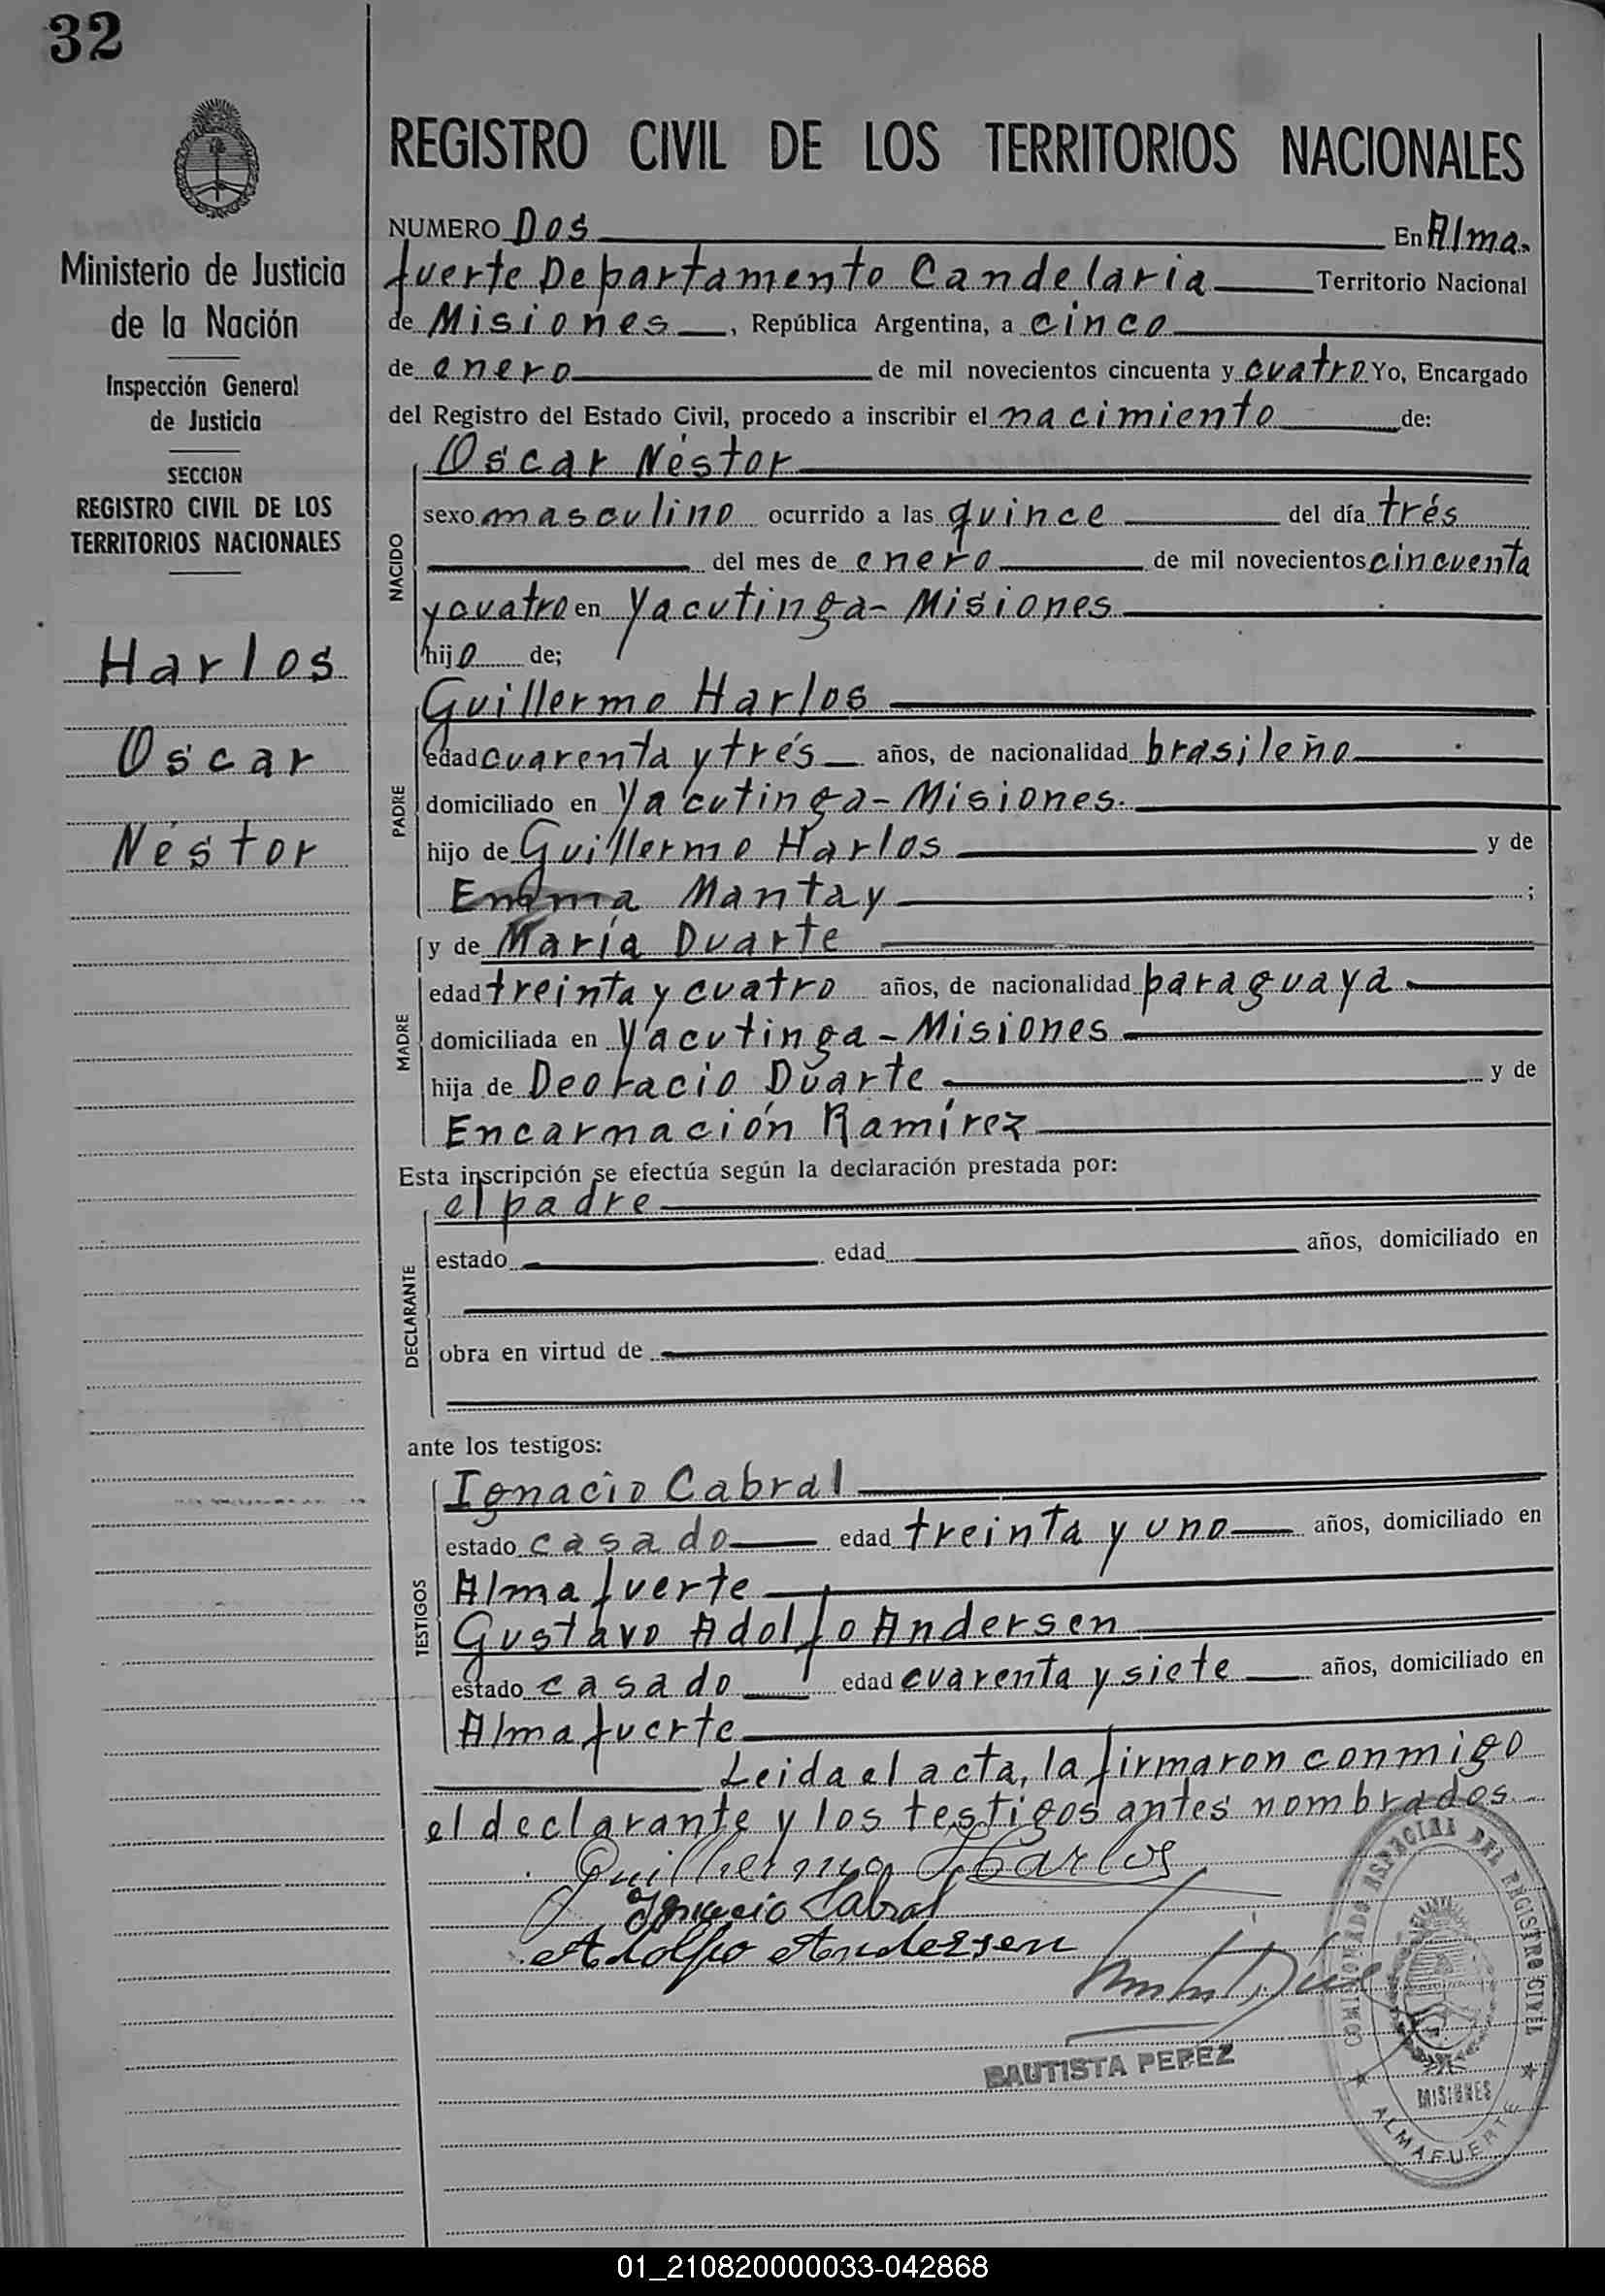 32
REGISTRO CIVIL DE LOS TERRITORIOS NACIONALES
Ministerio de Justicia
de la Nación
Inspección General
de Justicia
SECCION
REGISTRO CIVIL DE LOS
TERRITORIOS NACIONALES
Harlos
Oscar
Néstor
NUMERO Dos En Alma-
fuerte Departamento Candelaria Territorio Nacional
de Misiones, República Argentina, a cinco
de enero de mil novecientos cincuenta y cuatro Yo, Encargado
del Registro del Estado Civil, procedo a inscribir el nacimiento de:
NACIDO
Oscar Néstor
sexo masculino ocurrido a las quince del día trés
del mes de enero de mil novecientos cincuenta
y cuatro en Yacutinga-Misiones
hijo de;
PADRE
Guillermo Harlos
edad cuarenta y trés años, de nacionalidad brasileño
domiciliado en Yacutinga-Misiones.
hijo de Guillermo Harlos y de
Emma Mantay ;
MADRE
y de María Duarte
edad treinta y cuatro años, de nacionalidad paraguaya
domiciliada en Yacutinga-Misiones
hija de Deoracio Duarte y de
Encarnación Ramírez
Esta inscripción se efectúa según la declaración prestada por:
DECLARANTE
el padre
estado edad años, domiciliado en
obra en virtud de
ante los testigos:
TESTIGOS
Ignacio Cabral
estado casado edad treinta y uno años, domiciliado en
Almafuerte
Gustavo Adolfo Andersen
estado casado edad cuarenta y siete años, domiciliado en
Almafuerte
Leida el acta, la firmaron conmigo
el declarante y los testigos antes nombrados.
Guilhermo Harlos
Ignacio Cabral
Adolfo Andersen
BAUTISTA PEREZ
COMISIONADO ESPECIAL DEL REGISTRO CIVIL
MISIONES
ALMAFUERTE
01_210820000033-042868